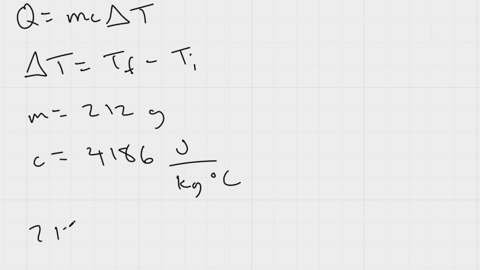 Q = mcΔT
ΔT = T_f - T_i
m = 212 g
c = 4186 J/kg°C
21